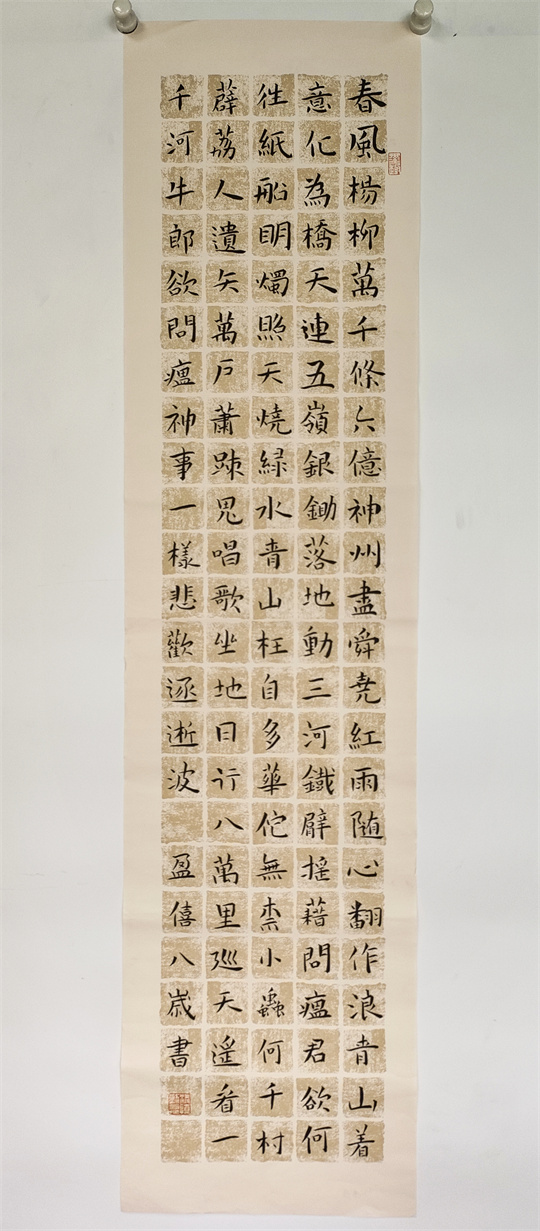 春風楊柳萬千條六億神州盡舜堯紅雨随心翻作浪青山着
意化為橋天連五嶺銀鋤落地動三河鐵臂搖藉問瘟君欲何
往紙船明燭照天燒緑水青山枉自多華佗無柰小蟲何千村
薜荔人遺矢萬戶蕭踈鬼唱歌坐地日行八萬里巡天遙看一
千河牛郎欲問瘟神事一樣悲歡逐逝波 盈僖八歲書